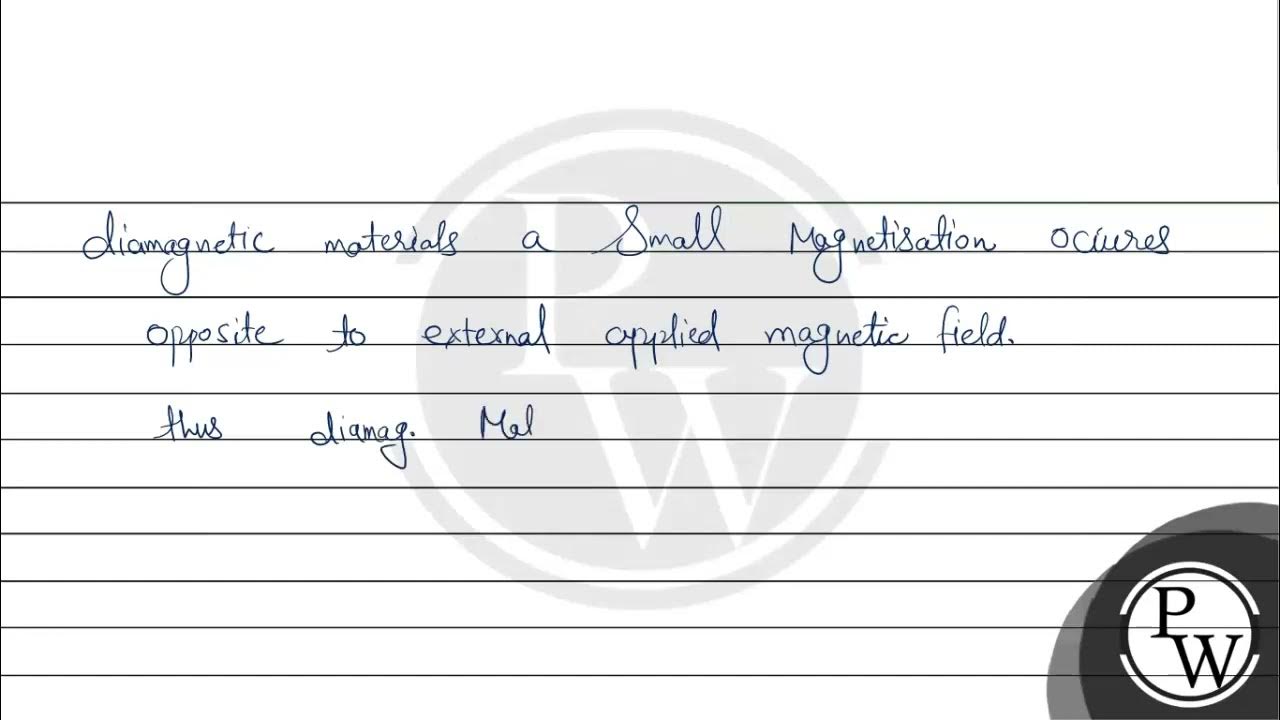 diamagnetic materials a Small Magnetisation ociures
opposite to external applied magnetic field.
thus diamag. Mal
PW
PW